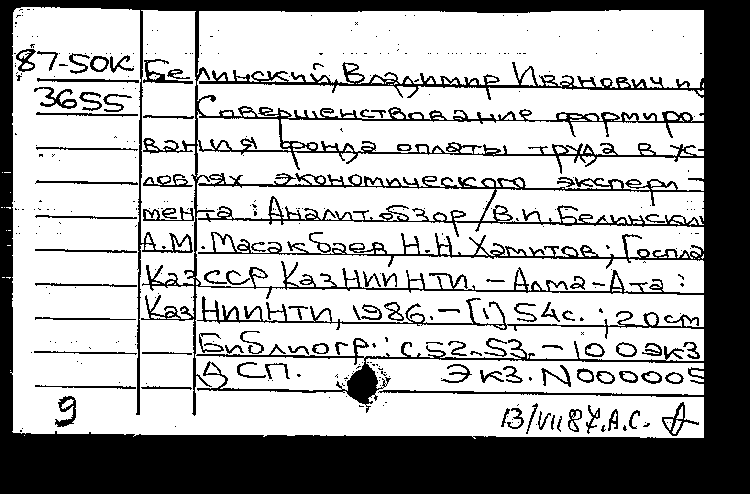 87-50К Белинский, Владимир Иванович и д
3655 Совершенствование формиро-
вания фонда оплаты труда в ус-
ловиях экономического экспери-
мента: Аналит. обзор / В.И. Белински
А.М. Масакбаев, Н.Н. Хамитов; Госпла
КазССР, КазНИИНТИ. - Алма-Ата:
КазНИИНТИ, 1986. - [1], 54с.; 20см
Библиогр.: с.52-53. - 100экз
ДСП. Экз. N000005
9 13/VII 87. А.С.